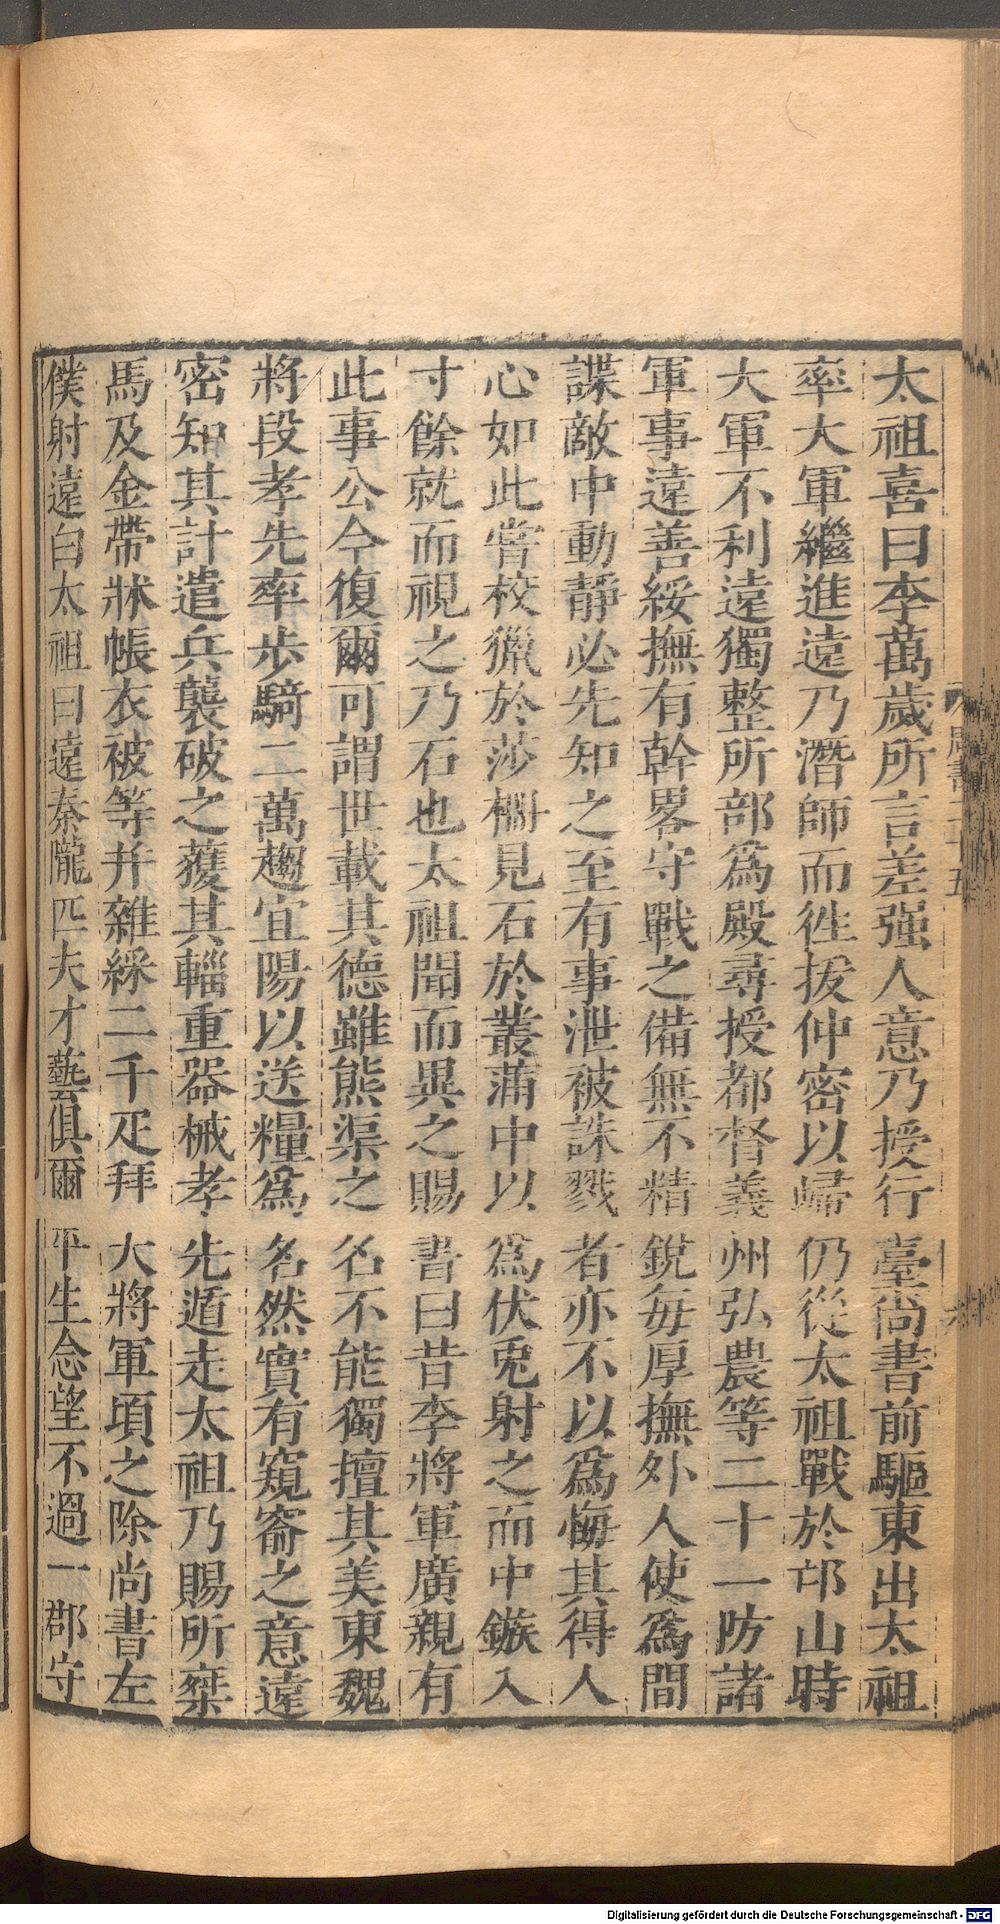 太祖喜曰李萬歲所言差强人意乃授行臺尚書前驅東出太祖
率大軍繼進遠乃潛師而徃拔仲密以歸仍從太祖戰於邙山時
大軍不利遠獨整所部爲殿尋授都督義州弘農等二十一防諸
軍事遠善綏撫有幹畧守戰之備無不精銳每厚撫外人使爲間
諜敵中動靜必先知之至有事泄被誅戮者亦不以爲悔其得人
心如此嘗校獵於莎柵見石於叢蒲中以爲伏兎射之而中鏃入
寸餘就而視之乃石也太祖聞而異之賜書曰昔李將軍廣親有
此事公今復爾可謂世載其德雖熊渠之名不能獨擅其美東魏
將段孝先率步騎二萬趨宜陽以送糧爲名然實有窺窬之意遠
密知其計遣兵襲破之獲其輜重器械孝先遁走太祖乃賜所乘
馬及金帶牀帳衣被等并雜綵二千疋拜大將軍頃之除尚書左
僕射遠白太祖曰遠秦隴匹夫才藝俱爾平生念望不過一郡守
Digitalisierung gefördert durch die Deutsche Forschungsgemeinschaft - DFG